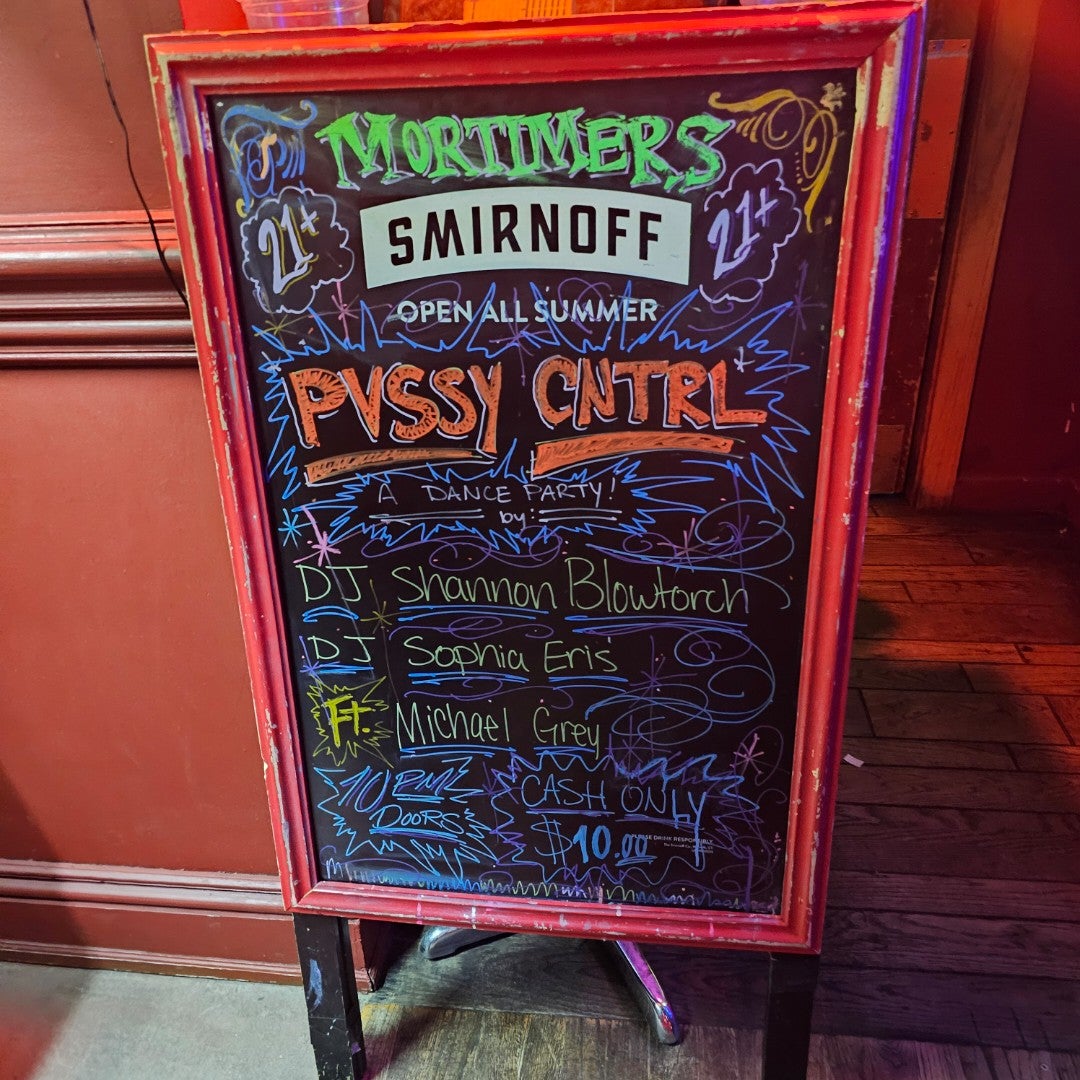 MORTIMERS
21+ SMIRNOFF 21+
OPEN ALL SUMMER
PVSSY CNTRL*
A DANCE PARTY!
by:
DJ Shannon Blowtorch
DJ Sophia Eris
Ft. Michael Grey
10 PM
DOORS
CASH ONLY
$10.00
PLEASE DRINK RESPONSIBLY.